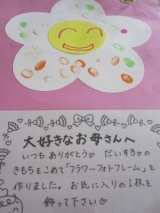 大好きなお母さんへ
いつもありがとう♡ だいすき♡の
きもちをこめて「フラワーフォトフレーム」を
作りました。お気に入りの1枚を
飾って下さい♡